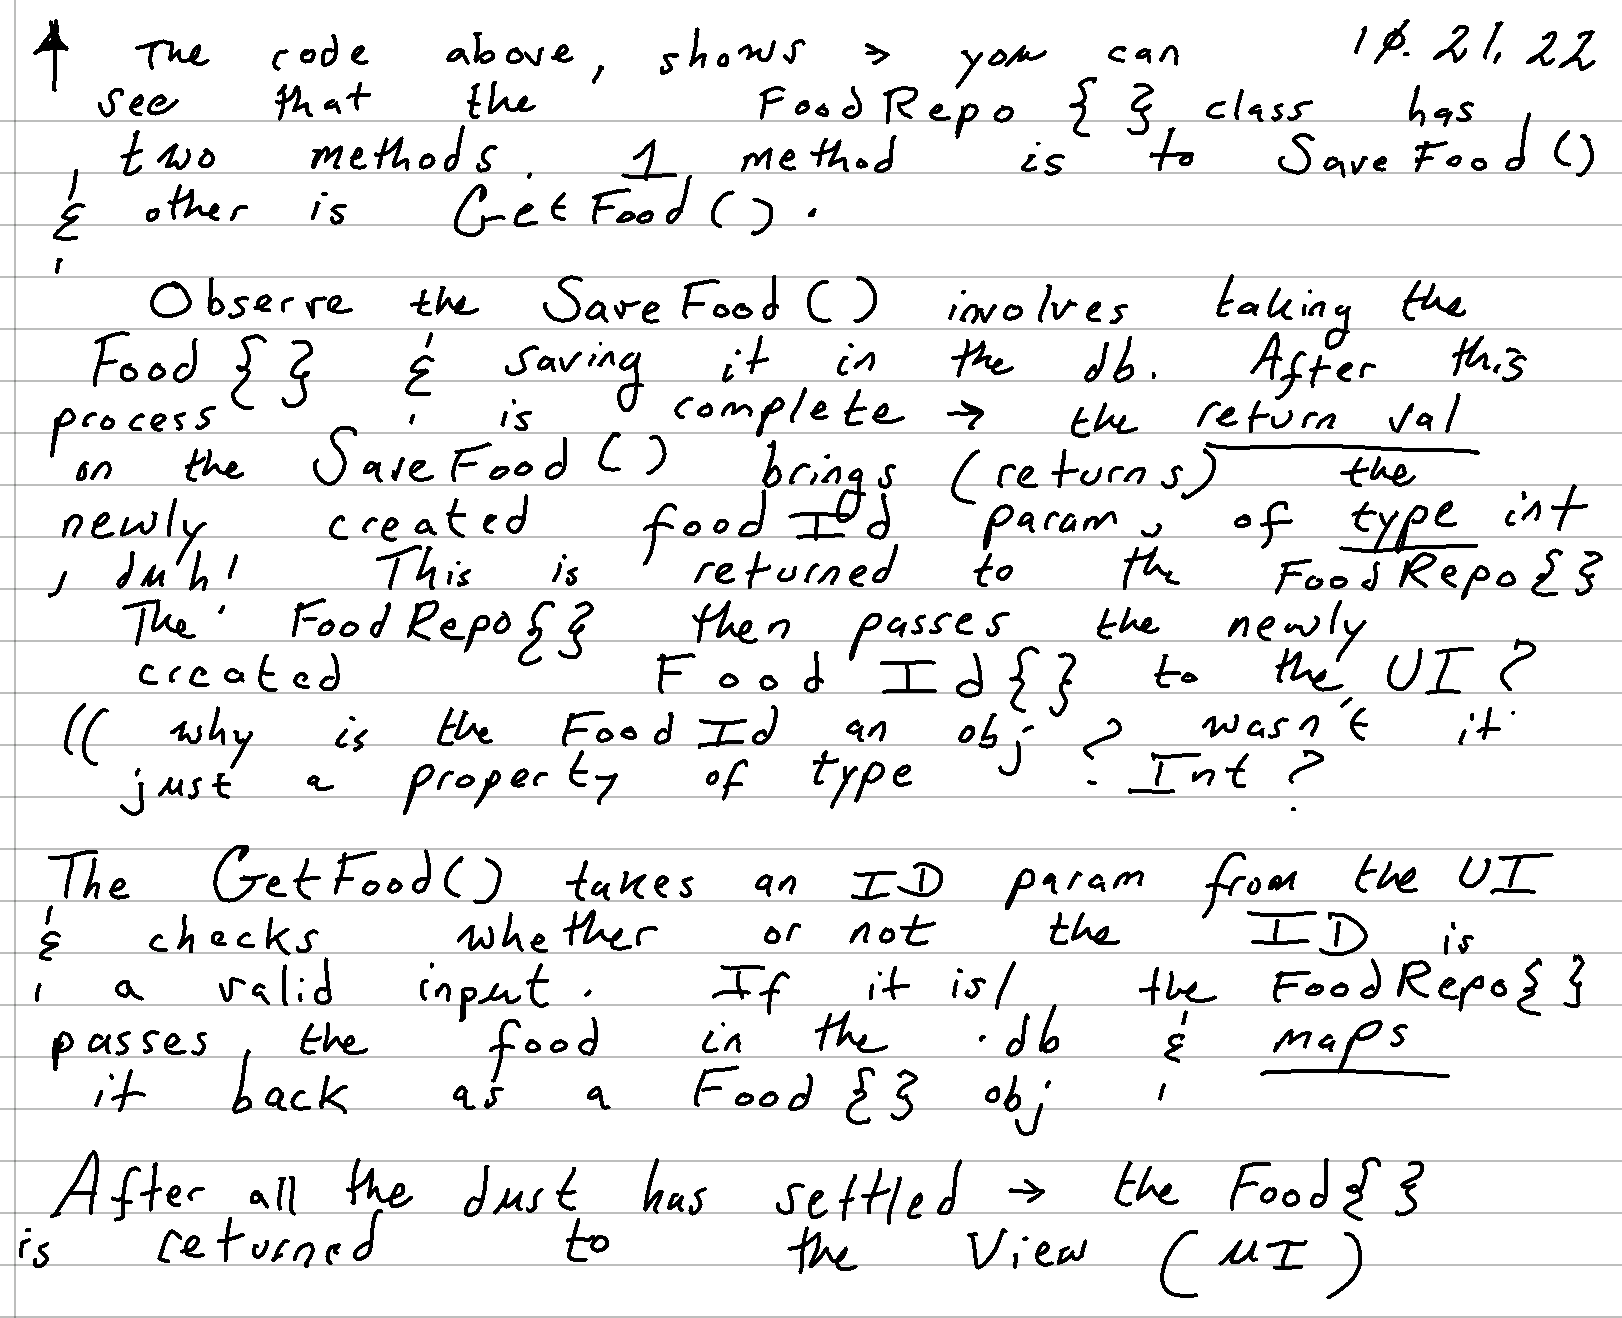 ↑ The code above, shows → you can 10.21.22
see that the FoodRepo {} class has
two methods. 1 method is to SaveFood()
& other is GetFood().
Observe the SaveFood() involves taking the
Food {} & saving it in the db. After this
process is complete → the return val
on the SaveFood() brings (returns) the
newly created foodId param, of type int
, duh! This is returned to the FoodRepo{}
The FoodRepo{} then passes the newly
created FoodId{} to the UI?
(( why is the FoodId an obj? wasn't it
just a property of type Int?
The GetFood() takes an ID param from the UI
& checks whether or not the ID is
a valid input. If it is, the FoodRepo{}
passes the food in the .db & maps
it back as a Food {} obj
After all the dust has settled → the Food{}
is returned to the View (UI)